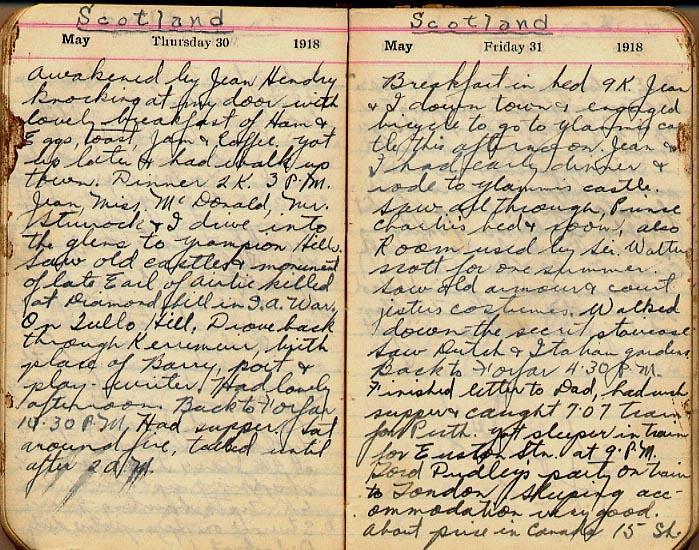 Scotland
May Thursday 30 1918
Awakened by Jean Hendry
knocking at my door with
lovely breakfast of Ham &
Eggs, toast, Jam & Coffee, got
up later & had walk up
town. Dinner 2 K. 3 P.M.
Jean, Miss, McDonald, Mr.
Sturrock & I drive into
the glens to Grampion Hills.
Saw old castles & monument
of late Earl of Airlie killed
at Diamond Hill in S.A. War.
On Tullo Hill, Drove back
through Kerriemuir, birth
place of Barry, poet &
play-writer. Had lovely
afternoon. Back to Forfar
10.30 P.M, Had supper. Sat
around fire, talked until
after 2 A.M.
Scotland
May Friday 31 1918
Breakfast in bed 9 K. Jean
& I down town & engaged
bicycle to go to Glammis cas
tle this afternoon. Jean &
I had early dinner &
rode to Glammis castle.
Saw all through, Prince
Charlie's bed & room, also
Room used by Sir. Walter
scott for one summer.
Saw old armour & court
jesters costumes. Walked
down the secret staircase
Saw Dutch & Italian gardens
Back to Forfar 4.30 P.M.
Finished letter to Dad, had
supper & caught 7.07 train
for Perth. Got sleeper in train
for Euston Stn. at 9 P.M.
Lord Dudleys party on train
to London, Sleeping acc-
ommodation very good.
About price in Canada 15 Sh.